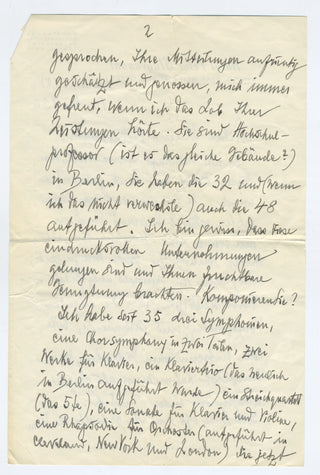 2
gesprochen, Ihre Mitteilungen aufrichtig
geschätzt und genossen, mich immer
gefreut, wenn ich das Lob Ihrer
Leistungen hörte. Sie sind Hochschul-
professor (ist es das gleiche Gebäude?)
in Berlin, Sie haben die 32 und (wenn
ich das nicht verwechsle) auch die 48
aufgeführt. Ich bin gewiss, dass diese
eindrucksvollen Unternehmungen
gelungen sind und Ihnen fruchtbare
Genugtuung brachten. Komponieren Sie?
Ich habe seit 35 drei Symphonien,
eine Chorsymphony in zwei Teilen, zwei
Werke für Klavier, ein Klaviertrio (das neulich
in Berlin aufgeführt wurde) ein Streichquartett
(das 5te), eine Sonate für Klavier und Violine,
eine Rhapsodie für Orchester (aufgeführt in
Cleveland, New York und London) die jetzt